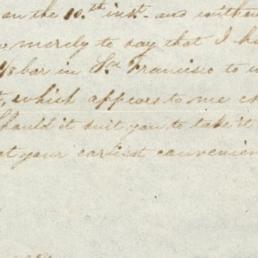 on the 10.th inst. and
merely to say that I
bar in Sn Francisco to
which appears to me
Should it suit you to take it
at your earliest convenien